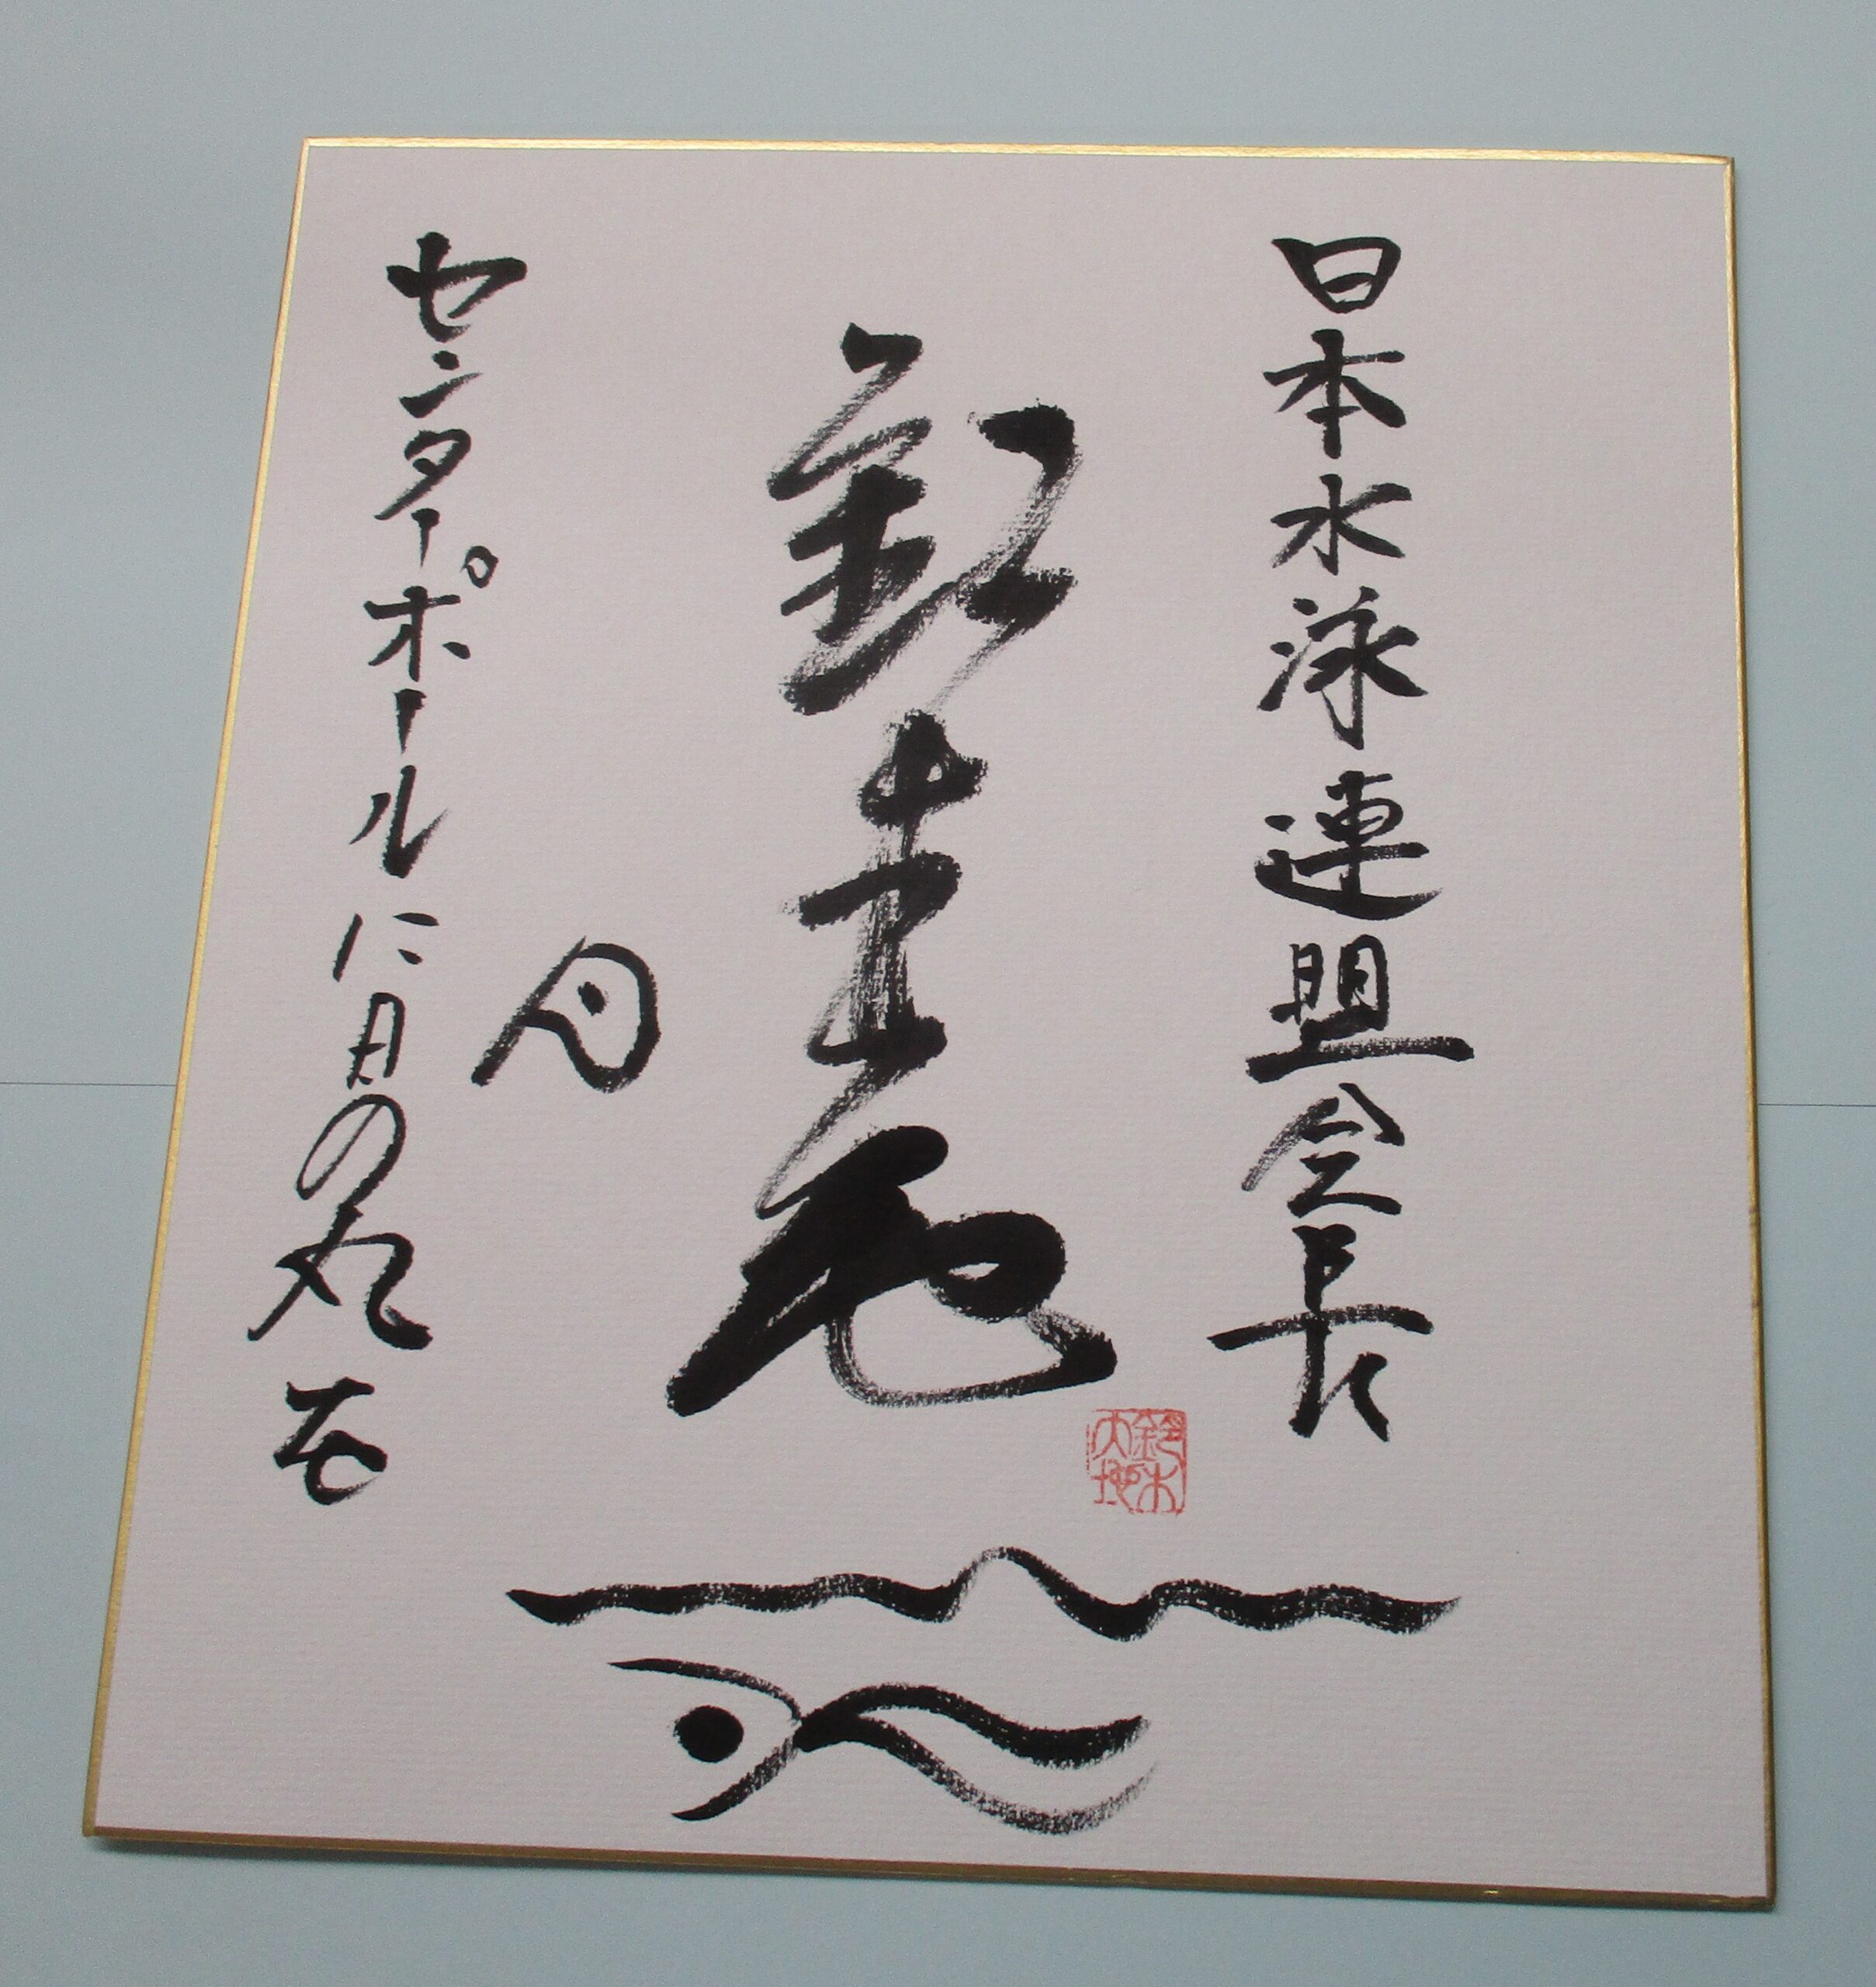 日本水泳連盟会長
鈴木大地
センターポールに日の丸を
鈴木
大地